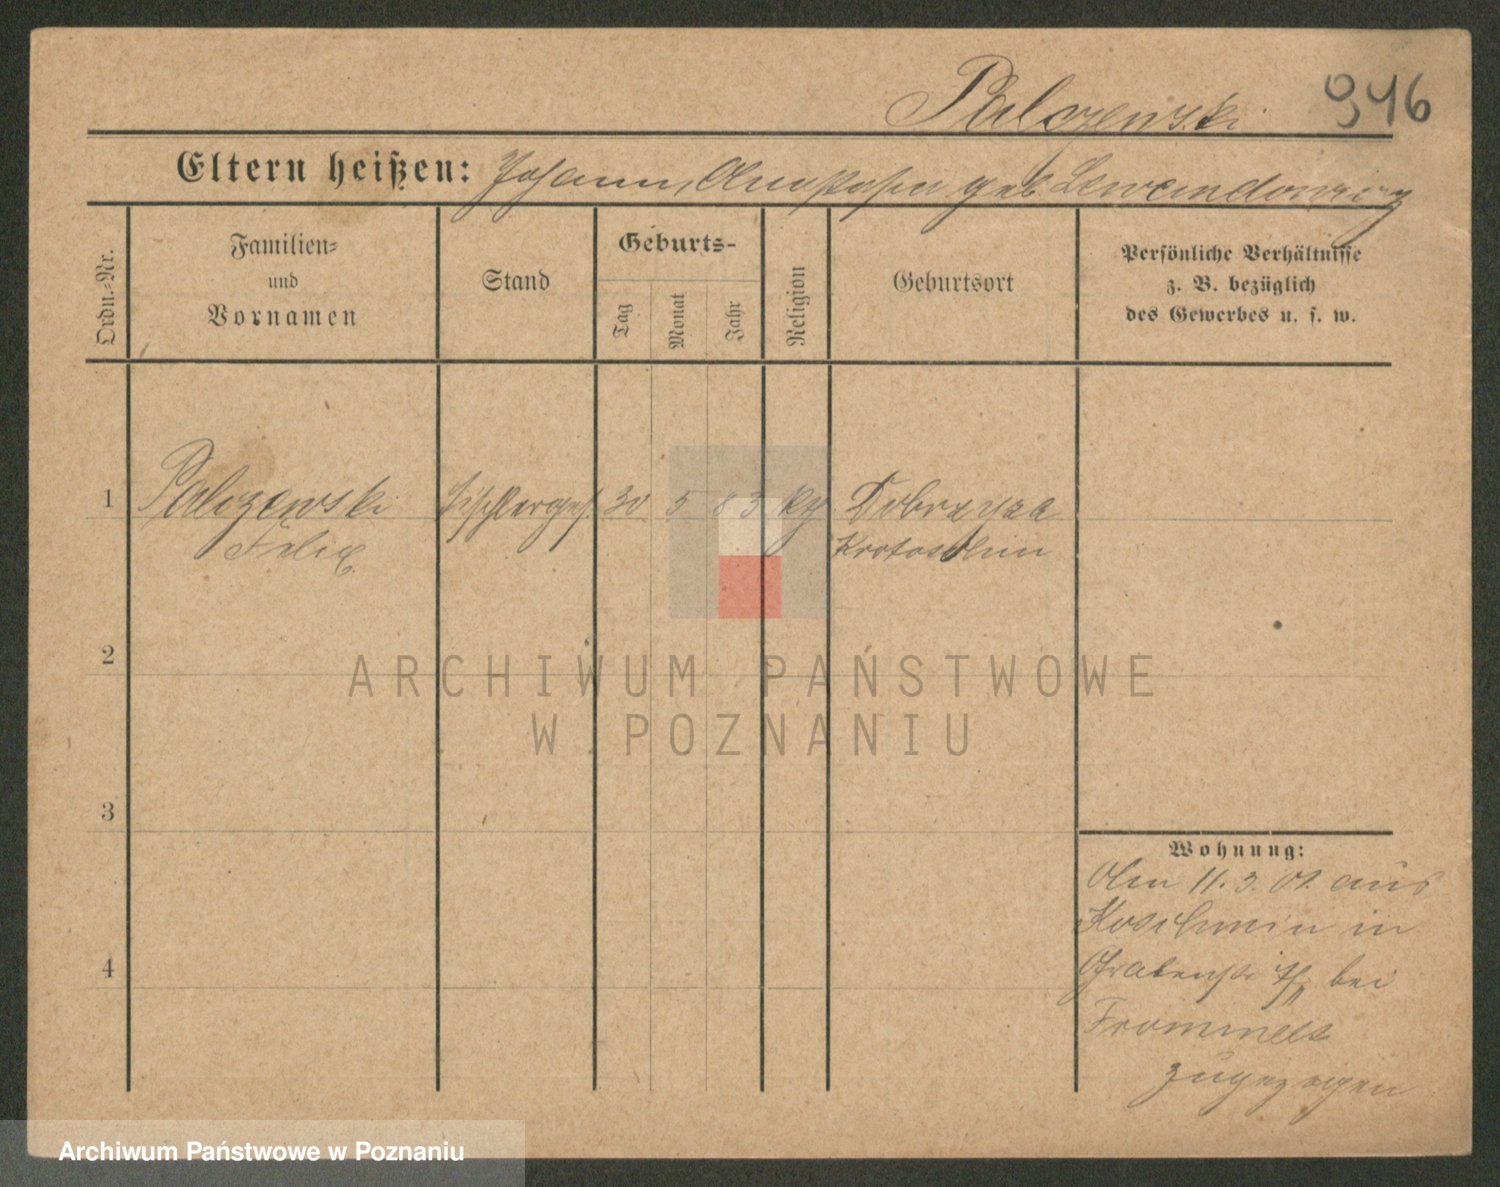 Palczewski 946
Eltern heißen: Johann, Anastasia geb Lewandowicz
Ordn.-Nr.
Familien-
und
Vornamen
Stand
Geburts-
Tag
Monat
Jahr
Religion
Geburtsort
Persönliche Verhältnisse
z. B. bezüglich
des Gewerbes u. s. w.
1 Palczewski Tischlerges. 30 5 83 Dobrzyca
Felix Krotoschin
2
ARCHIWUM PAŃSTWOWE
W POZNANIU
3
Wohnung:
Am 11.3.01. aus
Koschmin in
4 Grabenstr bei
Frommelt
zugezogen
Archiwum Państwowe w Poznaniu